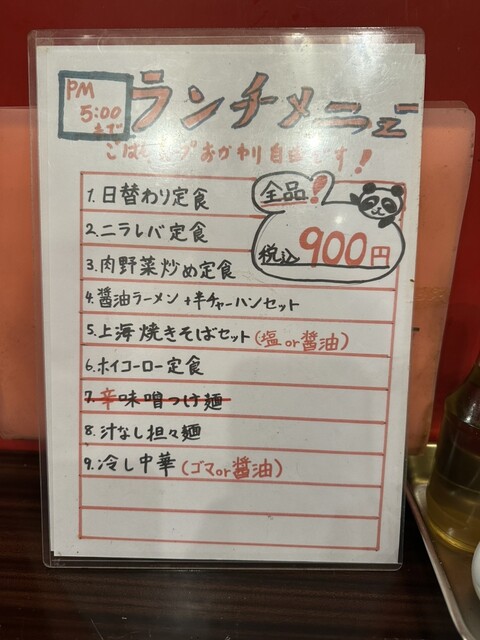 PM
5:00
まで
ランチメニュー
ごはん おかわり自由です!
1.日替わり定食
2.ニラレバ定食
3.肉野菜炒め定食
4.醤油ラーメン+半チャーハンセット
5.上海焼きそばセット(塩or醤油)
6.ホイコーロー定食
7.辛味噌つけ麺
8.汁なし担々麺
9.冷し中華(ゴマor醤油)
全品!
税込900円